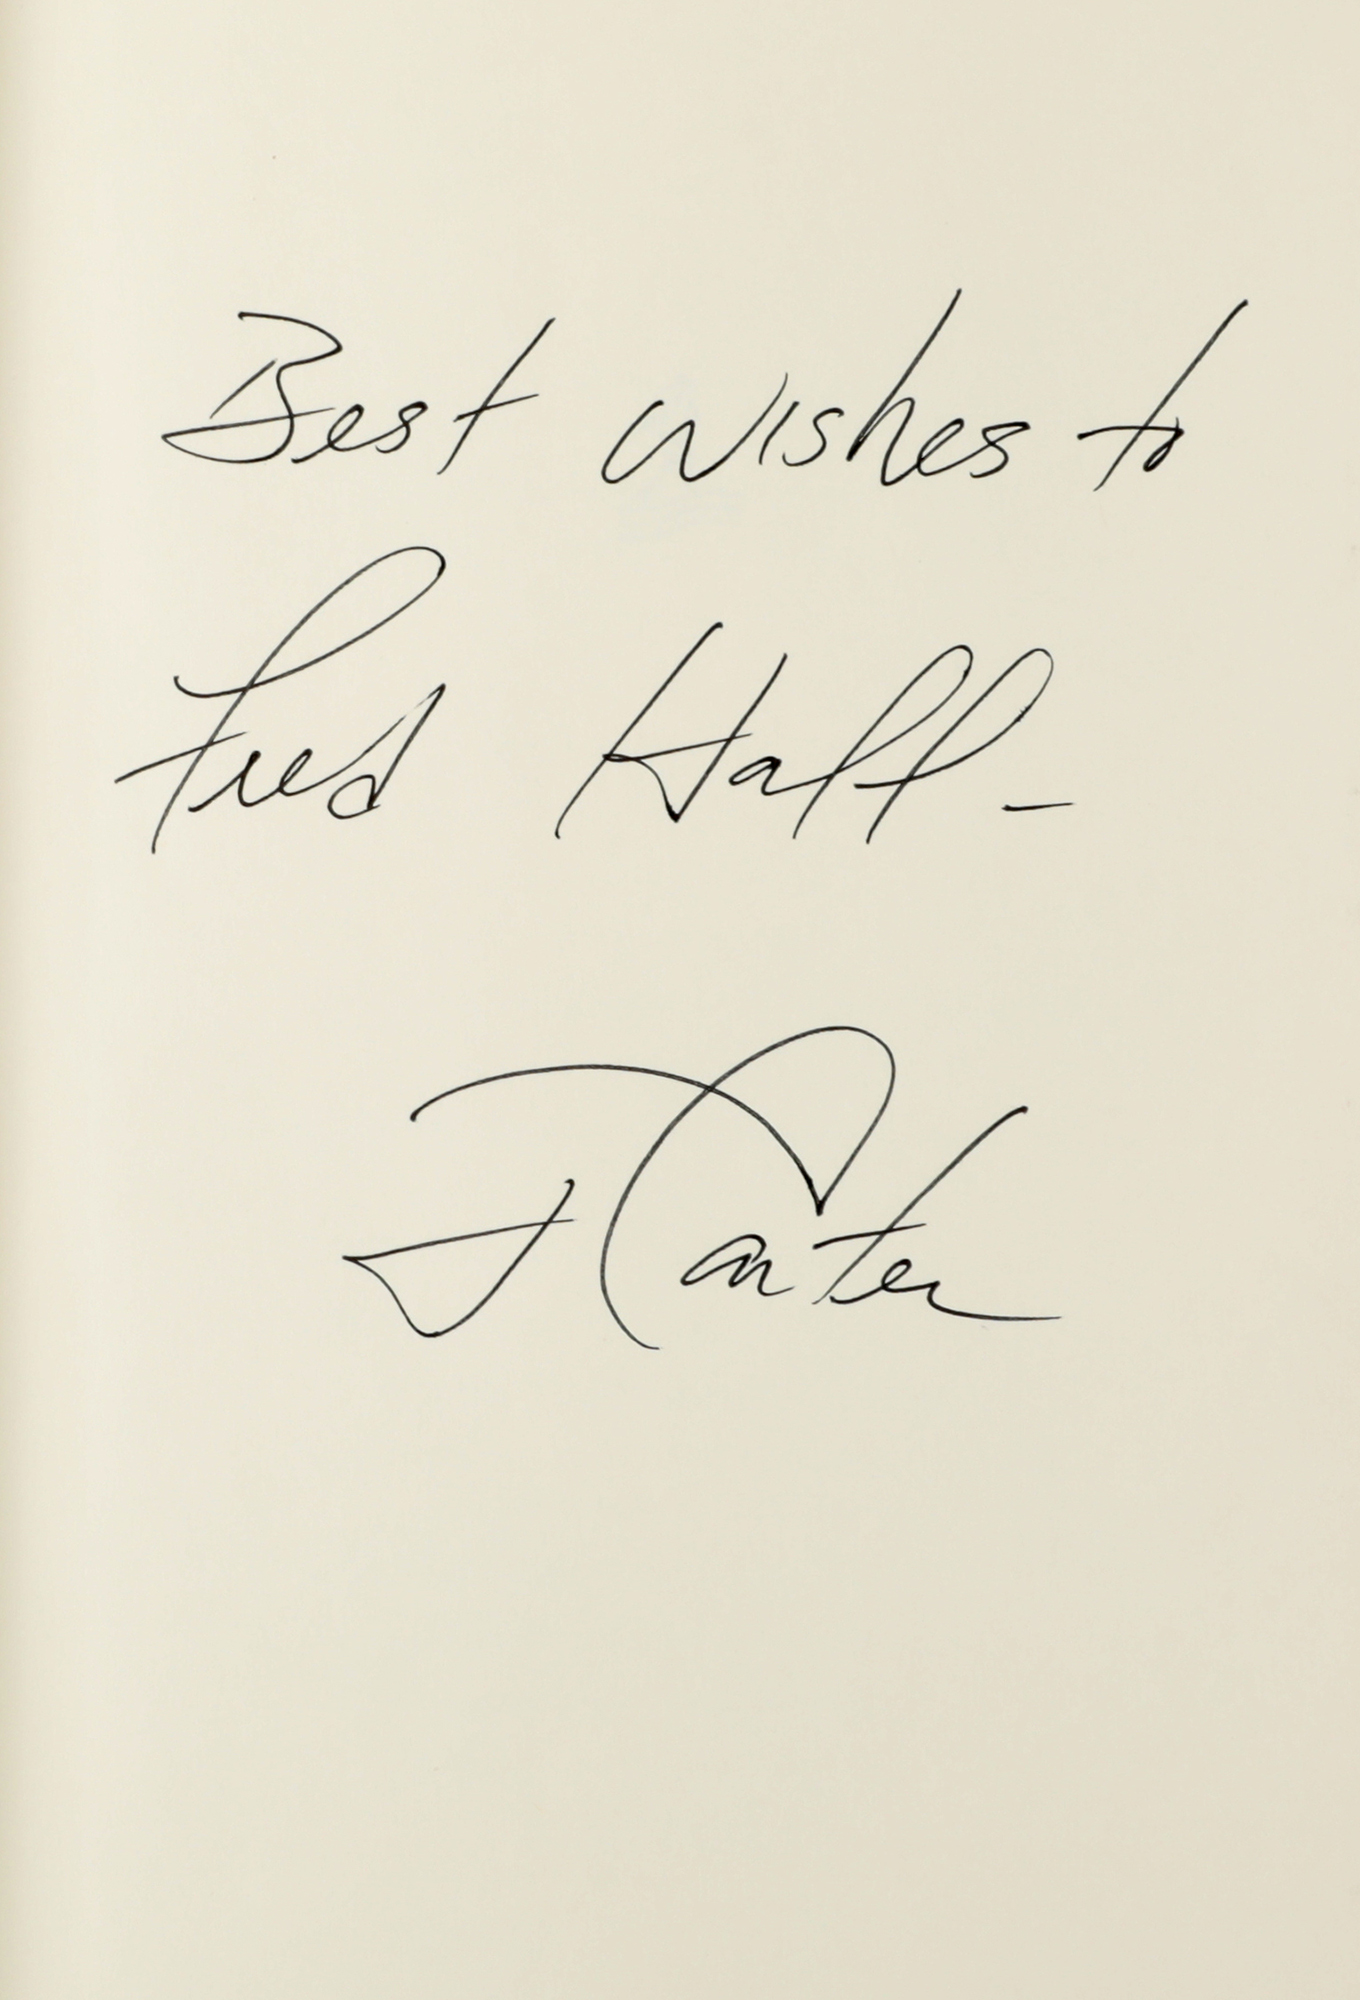 Best wishes to
Fred Hall -
J Carter